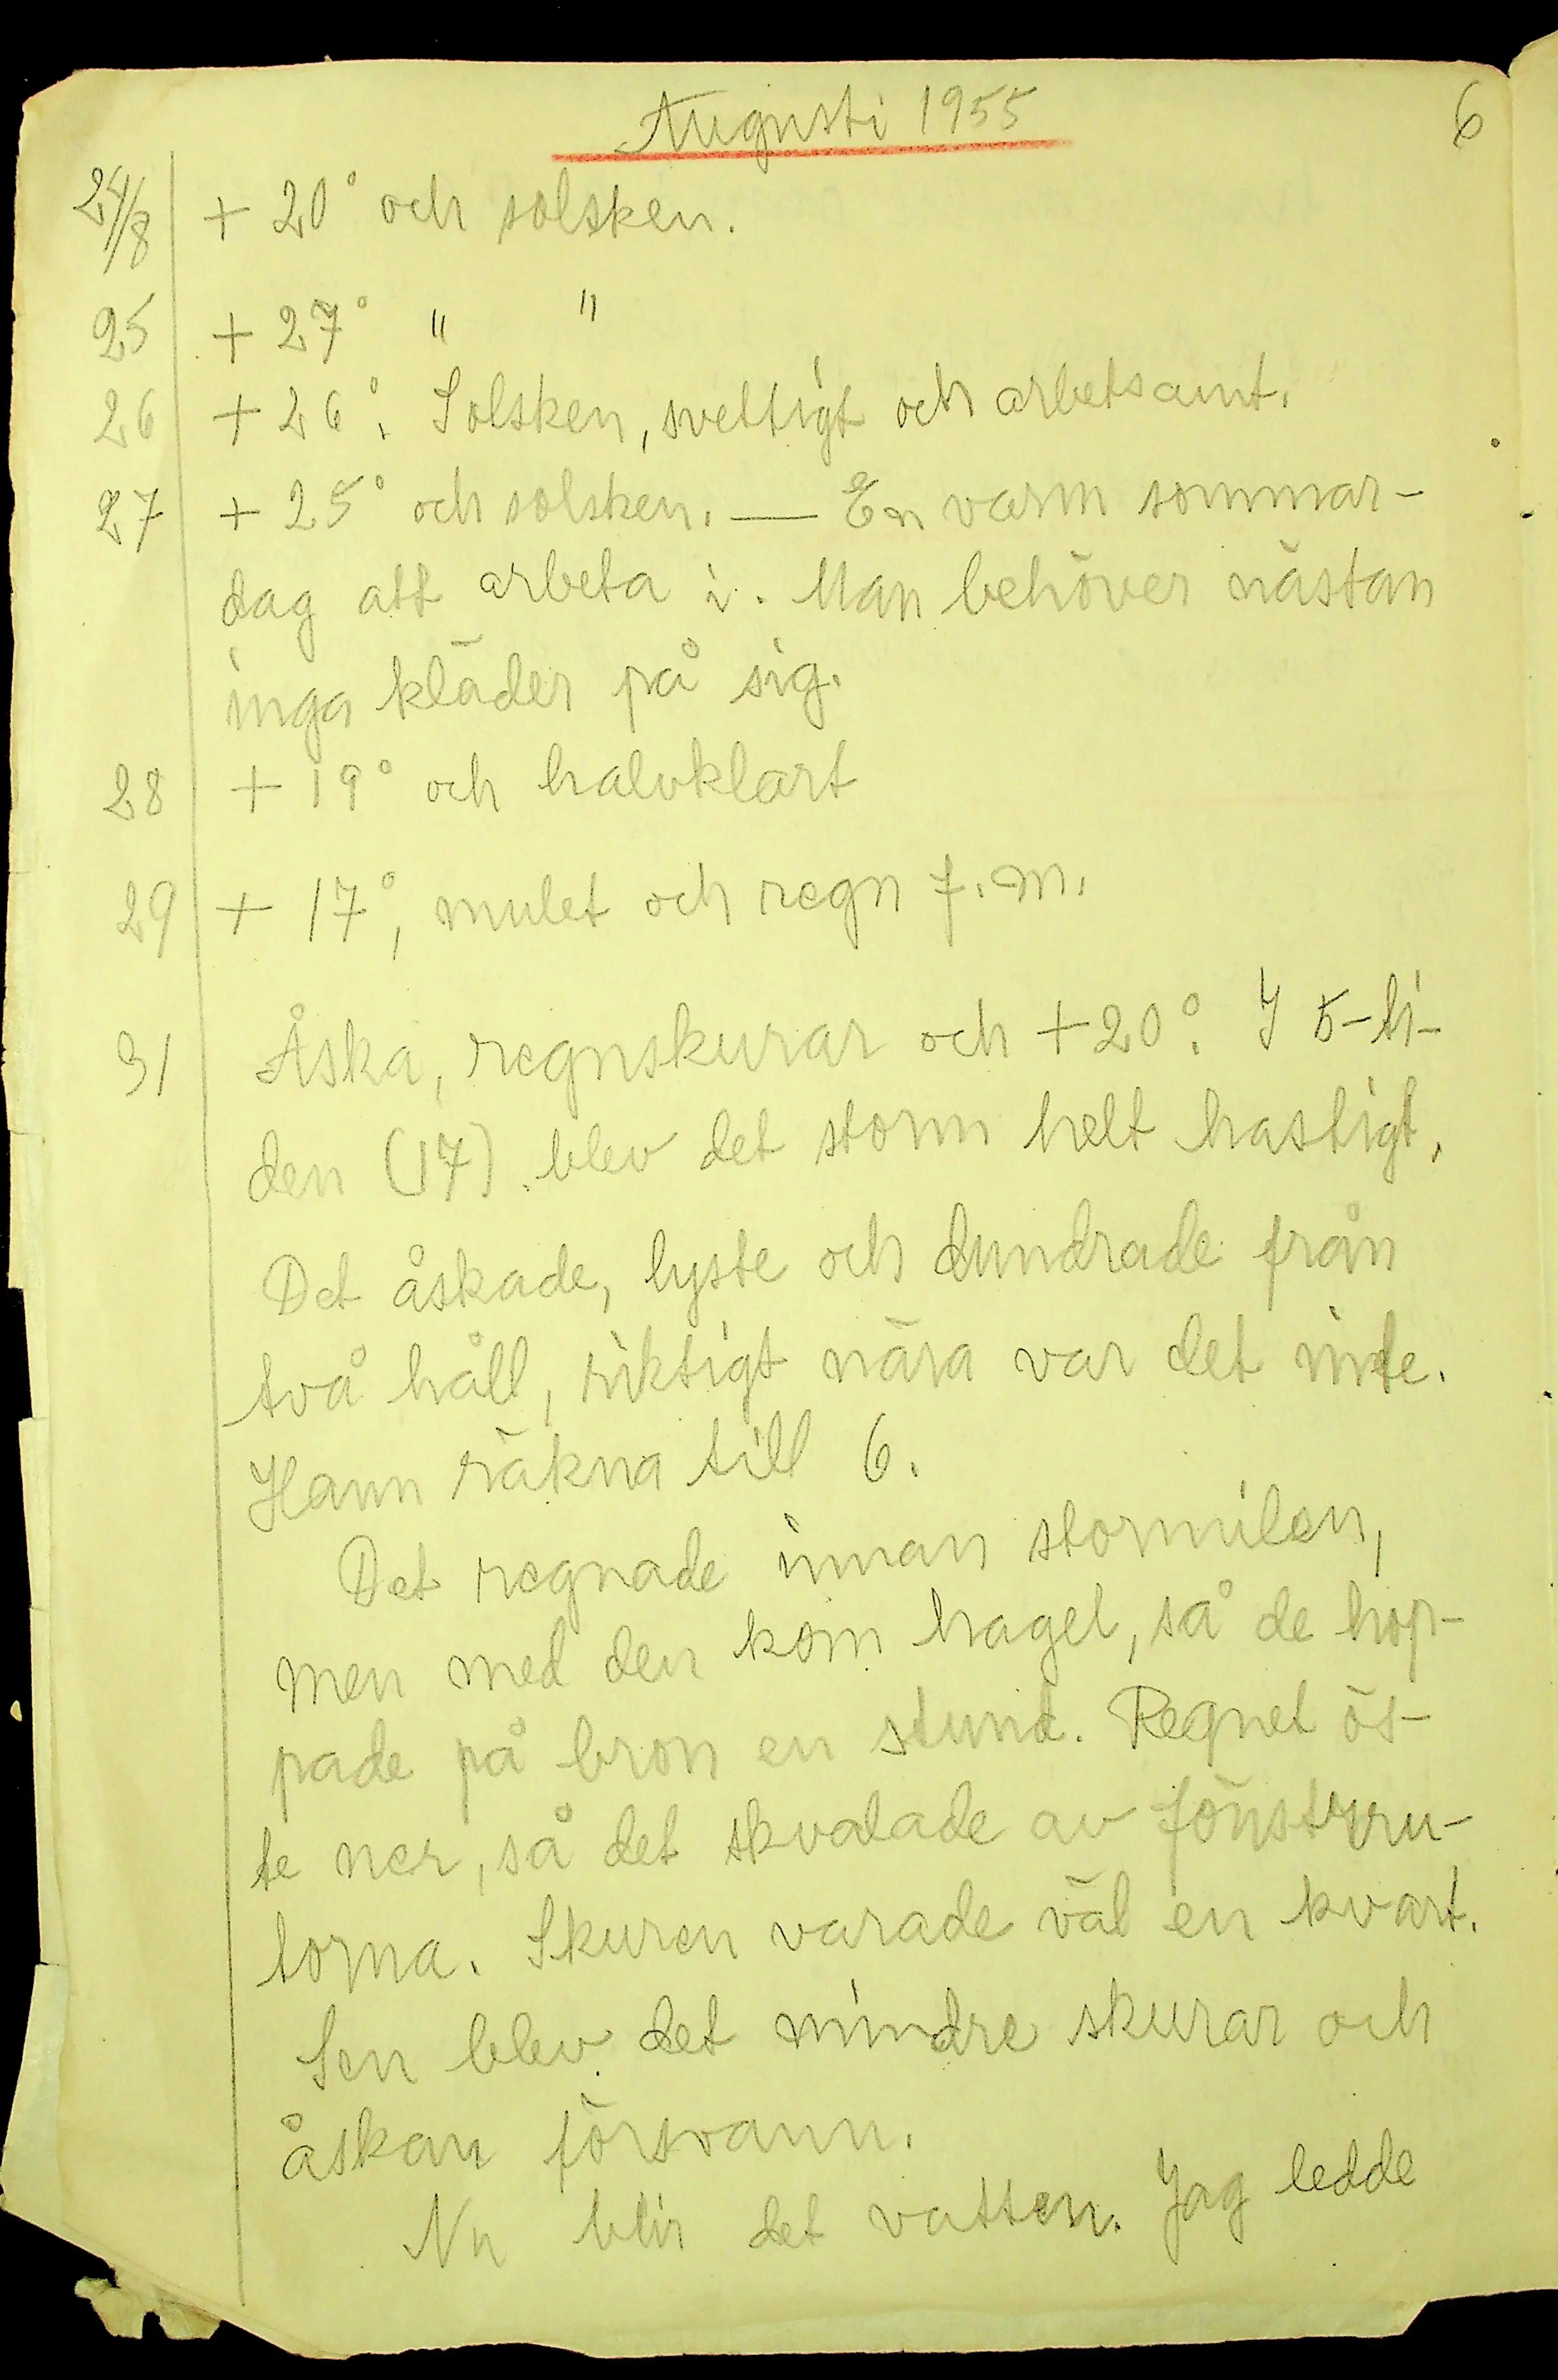 Augusti 1955
6
24/8 + 20° och solsken.
25 + 27° " "
26 + 26°. Solsken, svettigt och arbetsamt.
27 + 25° och solsken. — En varm sommar-
dag att arbeta i. Man behöver nästan
inga kläder på sig.
28 + 19° och halvklart
29 + 17°, mulet och regn f.m.
31 Åska, regnskurar och +20°. I 5-ti-
den (17) blev det storm helt hastigt.
Det åskade, lyste och dundrade från
två håll, riktigt nära var det inte.
Hann räkna till 6.
Det regnade innan stormilen,
men med den kom hagel, så de hop-
pade på bron en stund. Regnet ös-
te ner, så det skvalade av fönstrru-
torna. Skuren varade väl en kvart.
Sen blev det mindre skurar och
åskan försvann.
Nu blir det vatten. Jag ledde